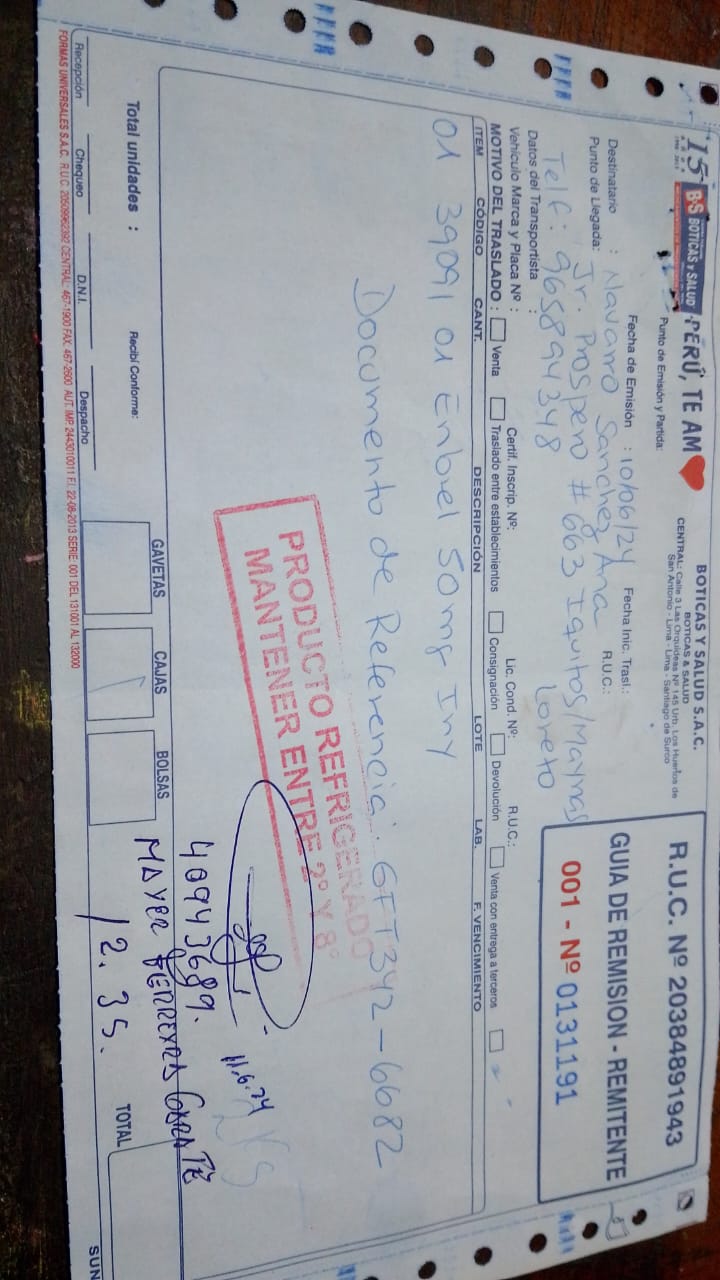 15 B•S BOTICAS y SALUD PERÚ, TE AM
BOTICAS Y SALUD S.A.C.
BOTICAS & SALUD
CENTRAL: Calle 3 Las Orquideas Nº 145 Urb. Los Huertos de
San Antonio - Lima - Lima - Santiago de Surco
Punto de Emisión y Partida:
R.U.C. Nº 20384891943
GUIA DE REMISION - REMITENTE
001 - Nº 0131191
Fecha de Emisión : 10/06/24 Fecha Inic. Trasl.:
Destinatario : Navarro Sanchez Ana R.U.C.:
Punto de Llegada: Jr. Prospero # 663 Iquitos/Maynas
Loreto
Telf: 965894348
Datos del Transportista :
Vehículo Marca y Placa Nº : Certif. Inscrip. Nº: Lic. Cond. Nº: R.U.C.:
MOTIVO DEL TRASLADO : Venta Traslado entre establecimientos Consignación Devolución Venta con entrega a terceros
ITEM CÓDIGO CANT. DESCRIPCIÓN LOTE LAB. F. VENCIMIENTO
01 39091 01 Enbrel 50mg Iny
Documento de Referencia: GTT342-6682
PRODUCTO REFRIGERADO
MANTENER ENTRE 2º Y 8º
11.6.24
40943689.
MAYER FERREYRA GARATE
12.35.
GAVETAS CAJAS BOLSAS
Total unidades : Recibí Conforme: TOTAL
Recepción Chequeo D.N.I. Despacho
SUN
FORMAS UNIVERSALES S.A.C. R.U.C. 20509962392 CENTRAL: 467-1900 FAX. 467-2600 AUT. IMP. 2443010011 F.I. 22-08-2013 SERIE: 001 DEL 131001 AL 132000